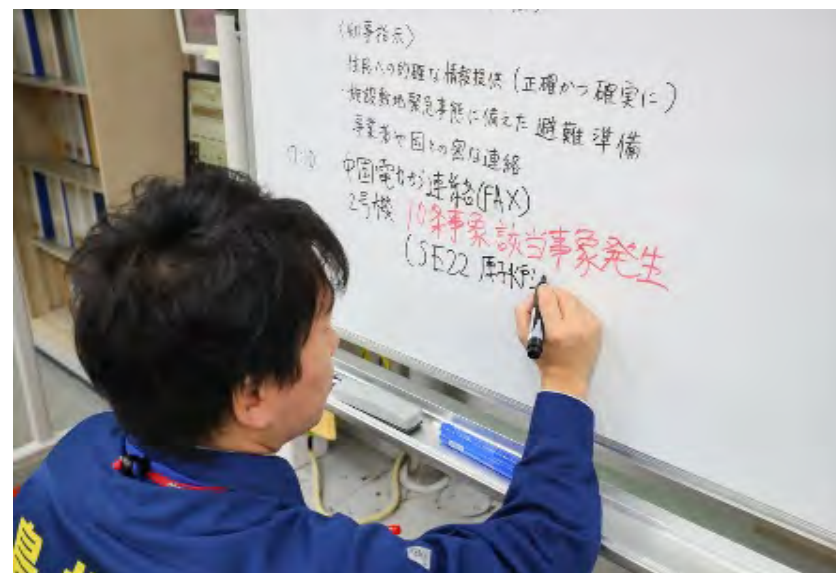 〈知事指示〉
・住民への的確な情報提供（正確かつ確実に）
・施設敷地緊急事態に備えた避難準備
・事業者や国との密な連絡
中国電力から連絡(FAX)
2号機 10条事象該当事象発生
(SE22 原子炉
島